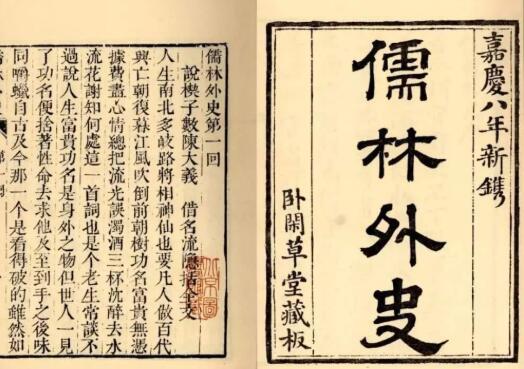 嘉慶八年新鐫
儒林外史
卧閑草堂藏板
儒林外史第一回
說楔子敷陳大義 借名流隱括全文
人生南北多歧路將相神仙也要凡人做百代
興亡朝復暮江風吹倒前朝樹功名富貴無憑
據費盡心情總把流光誤濁酒三杯沈醉去水
流花謝知何處這一首詞也是個老生常談不
過說人生富貴功名是身外之物但世人一見
了功名便捨著性命去求他及至到手之後味
同嚼蠟自古及今那一個是看得破的雖然如